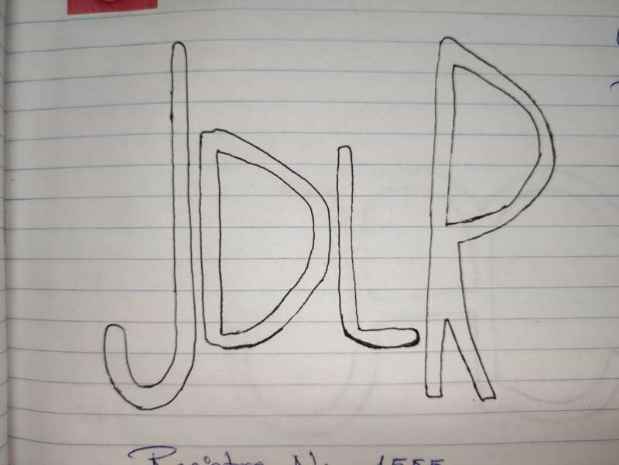 JDLR
Registro No. 1555